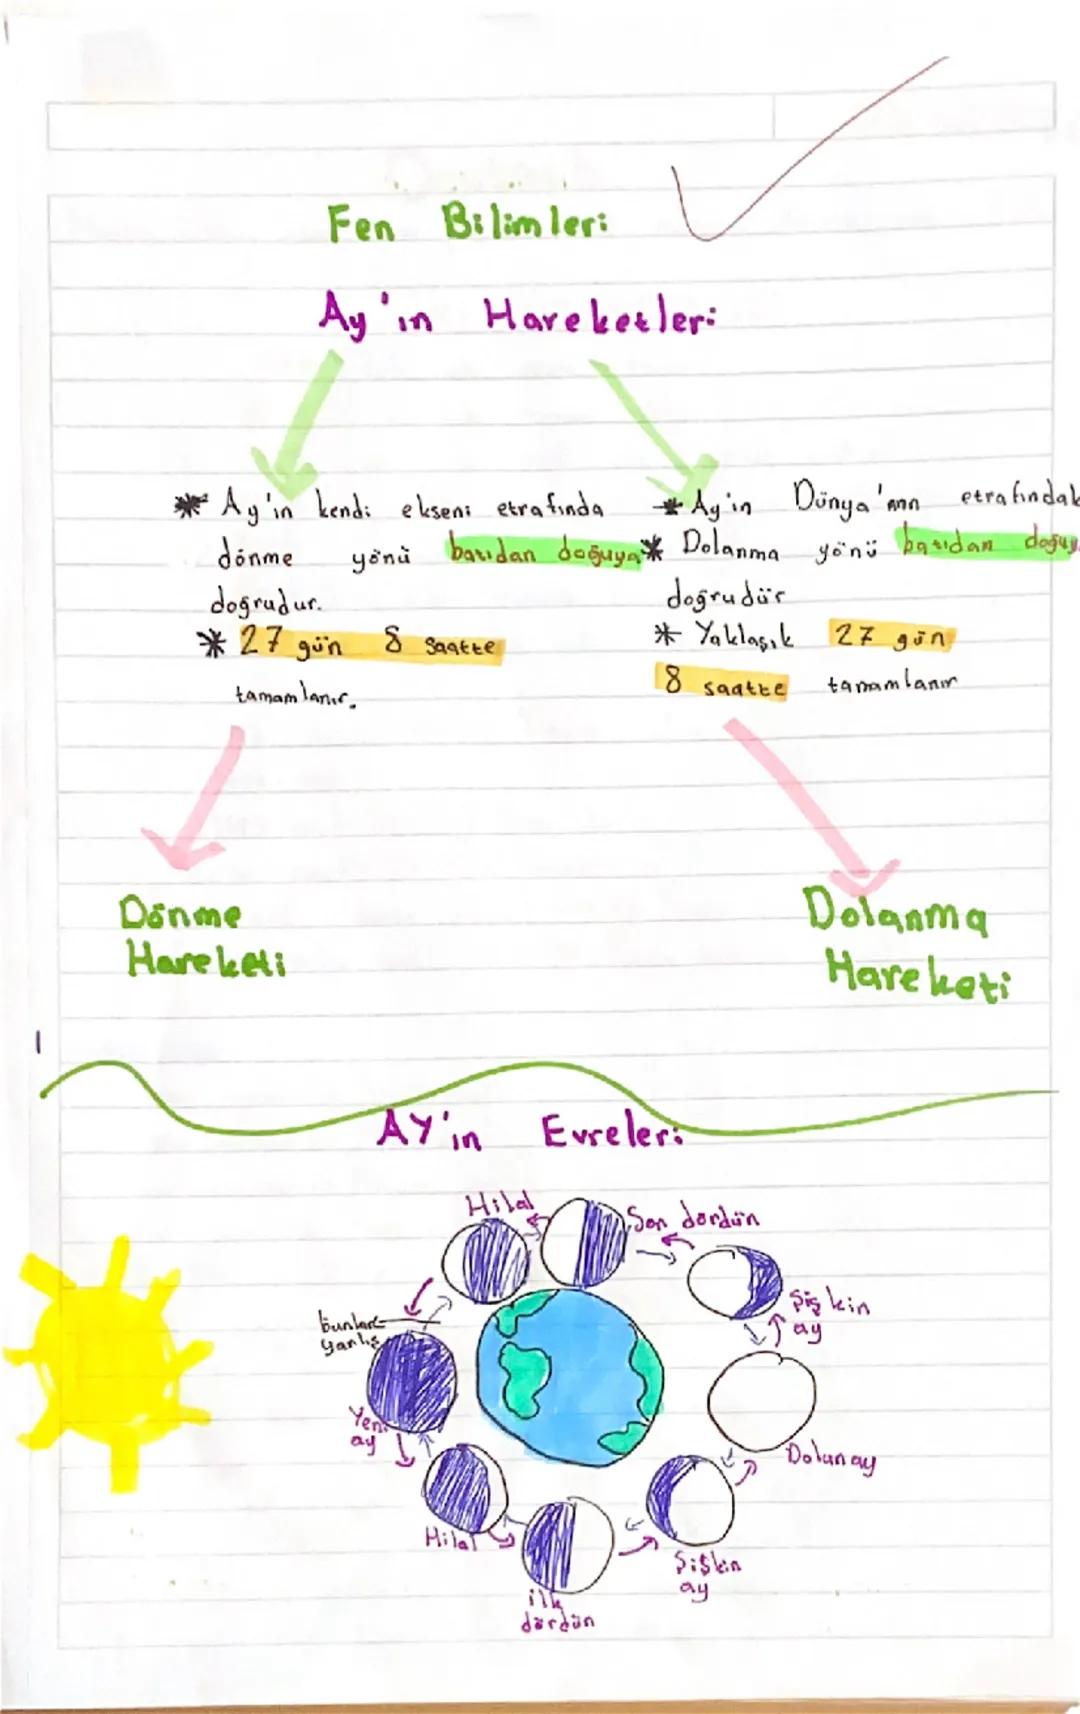 Fen Bilimleri
Ay'ın Hareketleri
* Ay'ın kendi ekseni etrafında
dönme yönü batıdan doğuya
doğrudur.
* 27 gün 8 saatte
tamamlanır.
* Ay'ın Dünya'nın etrafındak
* Dolanma yönü batıdan doğuy
doğrudür
* Yaklaşık 27 gün
8 saatte tamamlanır
Dönme
Hareketi
Dolanma
Hareketi
AY'ın Evreleri
Hilal
Son dördün
Şişkin
ay
bunlar
yanlış
Yeni
ay
Dolunay
Hilal
Şişkin
ay
ilk
dördün